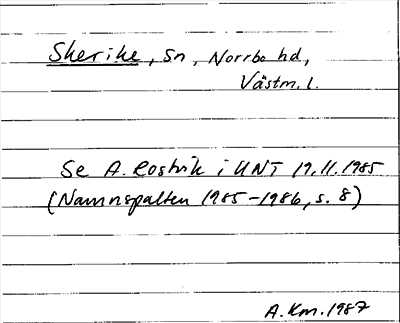 Skerike, Sn, Norrbo hd,
Västm. l.
Se A. Rostvik i UNT 19.11.1985
(Namnspalten 1985-1986, s. 8)
A.Km.1987